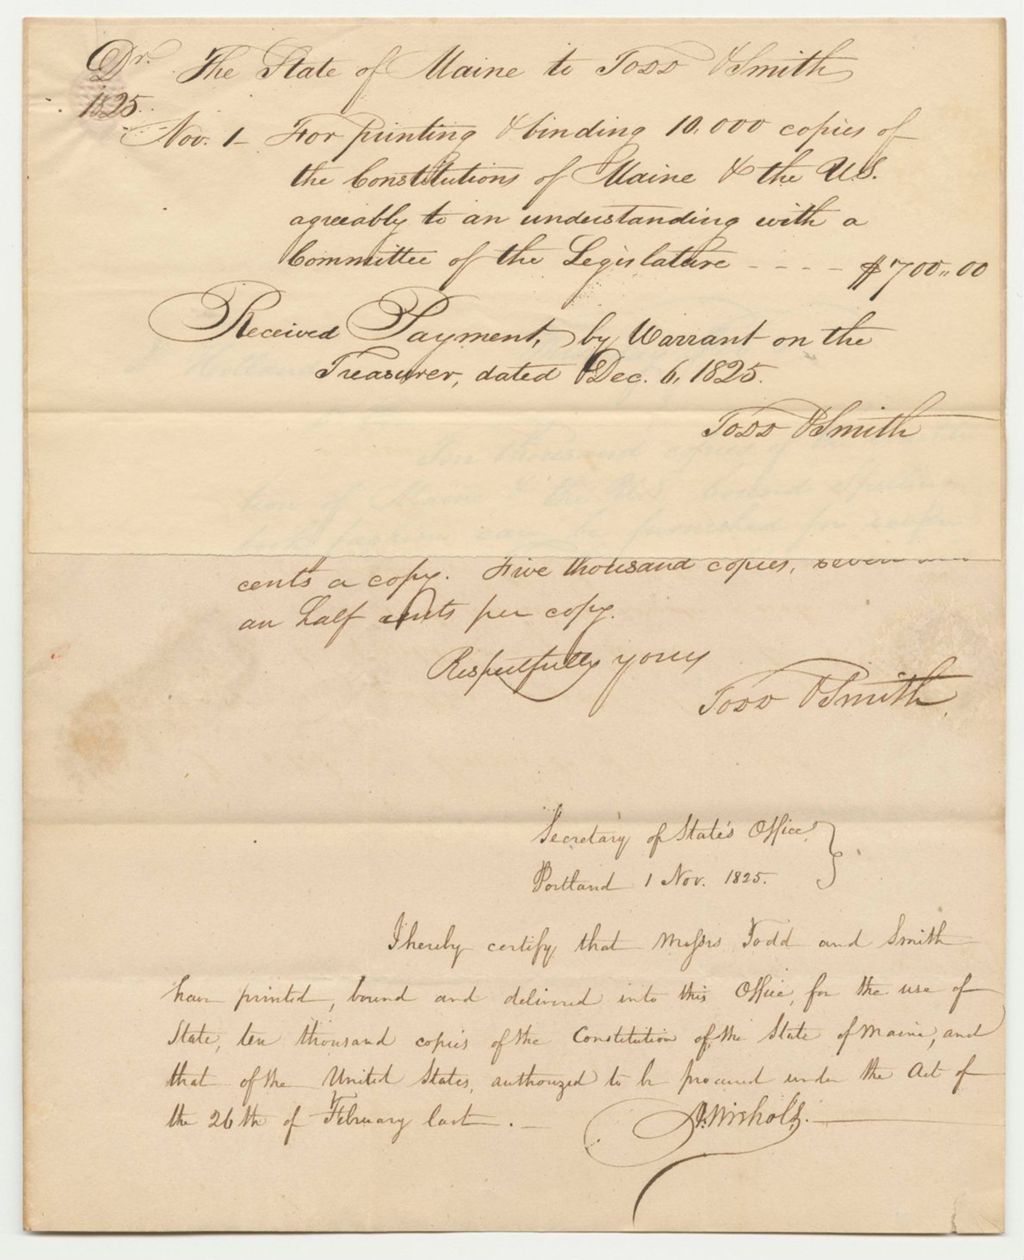 Dr. The State of Maine to Todd & Smith
1825.
Nov. 1 - For printing & binding 10.000 copies of
the Constitutions of Maine & the U.S.
agreeably to an understanding with a
Committee of the Legislature - - - - $700,,00
Received Payment, by Warrant on the
Treasurer, dated Dec. 6, 1825.
Todd & Smith
Ten thousand copies of
tion of Maine & the U.S. bound
can be furnished for
cents a copy. Five thousand copies, seven
an half cents per copy.
Respectfully yours
Todd & Smith.
Secretary of State's Office, }
Portland 1 Nov. 1825. }
I hereby certify that Messrs Todd and Smith
have printed, bound and delivered into this Office, for the use of
State, ten thousand copies of the Constitution of the State of Maine, and
that of the United States, authorized to be procured under the Act of
the 26th of February last. -
A. Nichols.